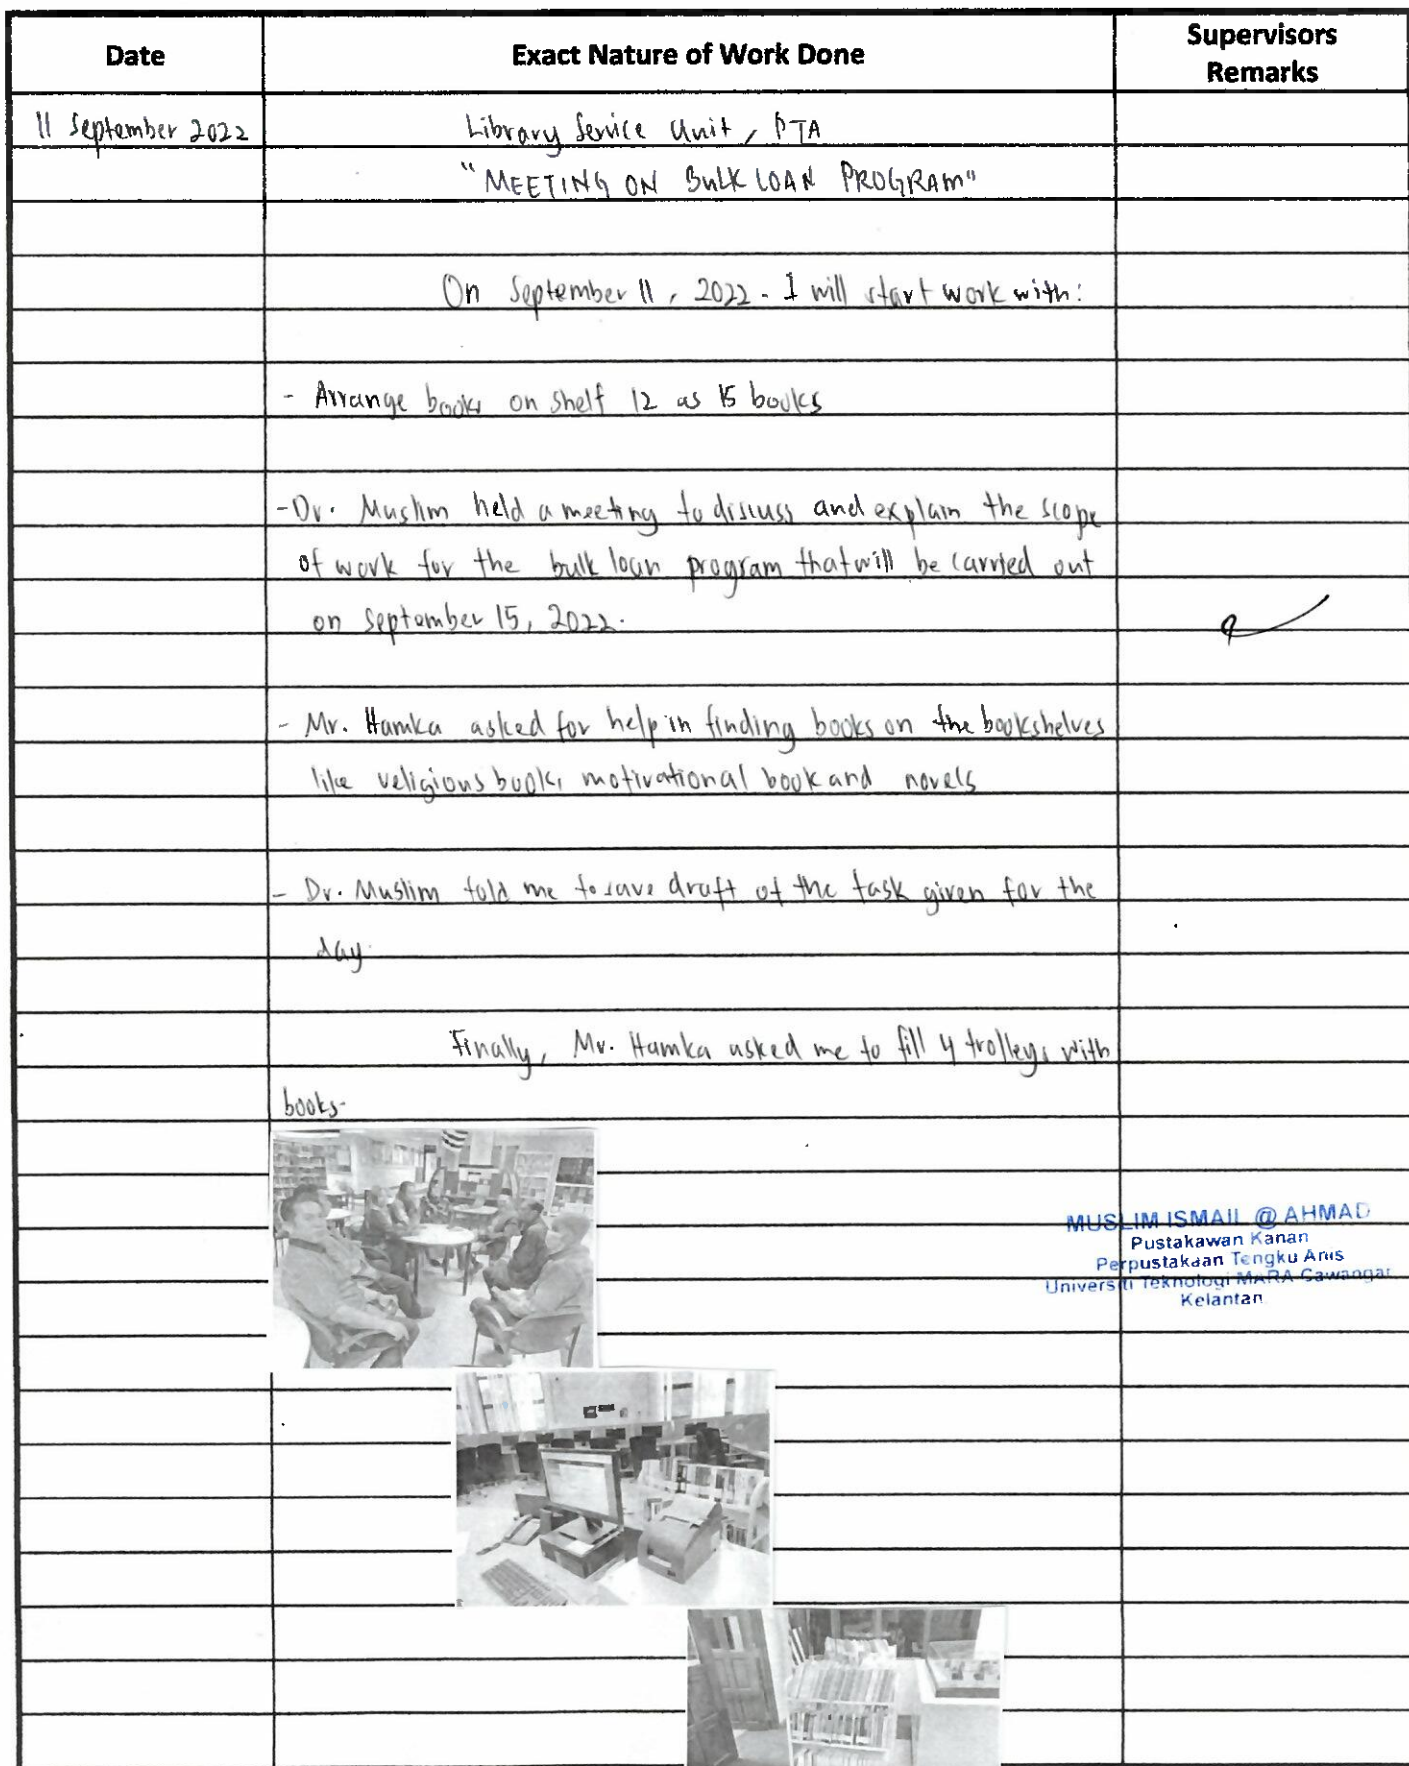 Date
Exact Nature of Work Done
Supervisors
Remarks
11 September 2022
Library Service Unit, PTA
"MEETING ON BULK LOAN PROGRAM"
On September 11, 2022. I will start work with:
- Arrange books on shelf 12 as 15 books
- Dr. Muslim held a meeting to discuss and explain the scope
of work for the bulk loan program that will be carried out
on September 15, 2022.
- Mr. Hamka asked for help in finding books on the bookshelves
like religious book, motivational book and novels
- Dr. Muslim told me to save draft of the task given for the
day.
Finally, Mr. Hamka asked me to fill 4 trolleys with
books.
MUSLIM ISMAIL @ AHMAD
Pustakawan Kanan
Perpustakaan Tengku Anis
Universiti Teknologi MARA Cawangan
Kelantan